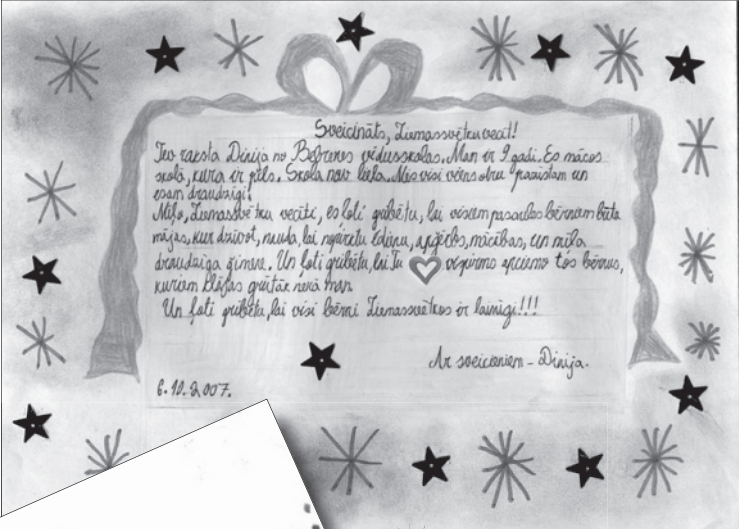 Sveicināts, Ziemassvētku vecīt!
Tev raksta Dinija no Bebrenes vidusskolas. Man ir 9 gadi. Es mācos
skolā, kura ir pils. Skola nav liela. Mēs visi viens otru pazīstam un
esam draudzīgi.
Mīļo, Ziemassvētku vecīti, es ļoti gribētu, lai visiem pasaules bērniem būtu
mājas, kur dzīvot, nauda, lai nopirktu ēdienu, apģērbs, mācības, un mīļa
draudzīga ģimene. Un ļoti gribētu, lai Tu vispirms apciemo tos bērnus,
kuriem klājas grūtāk nekā man.
Un ļoti gribētu, lai visi bērni Ziemassvētkos ir laimīgi!!!
Ar sveicieniem - Dinija.
6.12.2007.